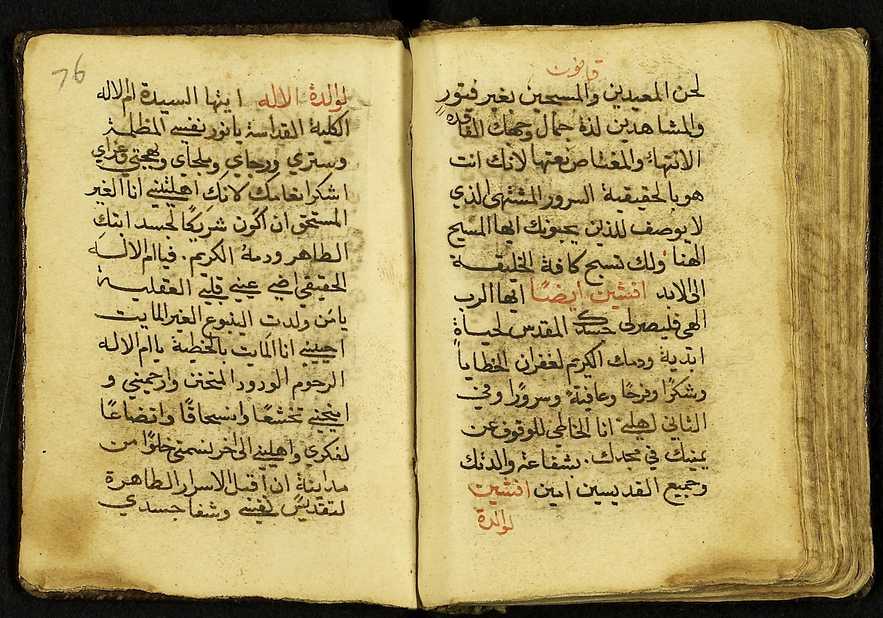 قانون
لحن المعيدين والمسبحين بغير فتور
والمشاهدين لذة جمال وجهك الفاقده
الانتهاء والمعتاص نعتها لانك انت
هو بالحقيقية السرور المشتهى الذي
لا يوصف للذين يحبونك ايها المسيح
الهنا ولك تسبح كافة الخليقة
الى الابد افشين ايضًا ايها الرب
الهي فليصر لي جسدك المقدس لحياة
ابدية ودمك الكريم لغفران الخطايا
وشكرًا وفرحًا وعافيةً وسرورًا وفي
الثاني اهلني انا الخاطي للوقوف عن
يمينك في مجدك. بشفاعة والدتك
وجميع القديسين امين افشين
لوالدة
76
لوالدة الاله ايتها السيدة ام الاله
الكلية القداسة يا نور نفسي المظلمة
وستري ورجاي وملجاي وبهجتي وعزاي
اشكر انعامك لانك اهلتيني انا الغير
المستحق ان اكون شريكًا لجسد ابنك
الطاهر ودمه الكريم. فيا ام الاله
الحقيقي اضي عيني قلبي العقلية
يا من ولدت الينبوع الغير المايت
احييني انا المايت بالخطية يا ام الاله
الرحوم الودود المتحنن وارحميني و
امنحيني تخشعًا وانسحاقًا واتضاعًا
لفكري واهليني الى اخر نسمتي خلوًا من
مداينةٍ ان اقبل الاسرار الطاهرة
لتقديس نفسي وشفا جسدي